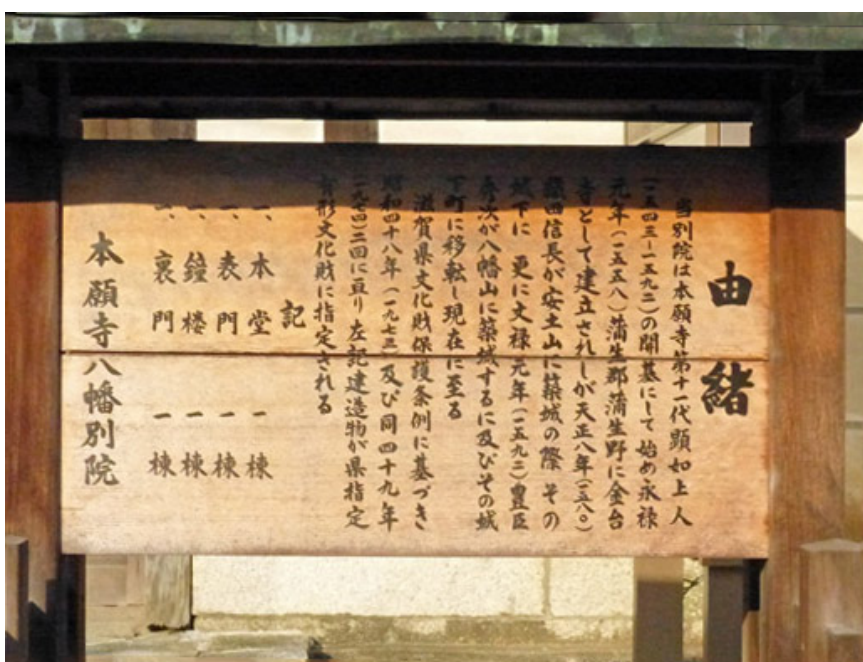 由緒
当別院は本願寺第十一代顕如上人
(一五四三ー一五九二)の開基にして始め永禄
元年(一五五八)蒲生郡蒲生野に金台
寺として建立されしが天正八年(一五八〇)
織田信長が安土山に築城の際 その
城下に 更に文禄元年(一五九二)豊臣
秀次が八幡山に築城するに及びその城
下町に移転し現在に至る
滋賀県文化財保護条例に基づき
昭和四十八年(一九七三)及び同四十九年
(一九七四)二回に亘り左記建造物が県指定
有形文化財に指定される
記
一、本堂 一棟
一、表門 一棟
一、鐘楼 一棟
一、裏門 一棟
本願寺八幡別院